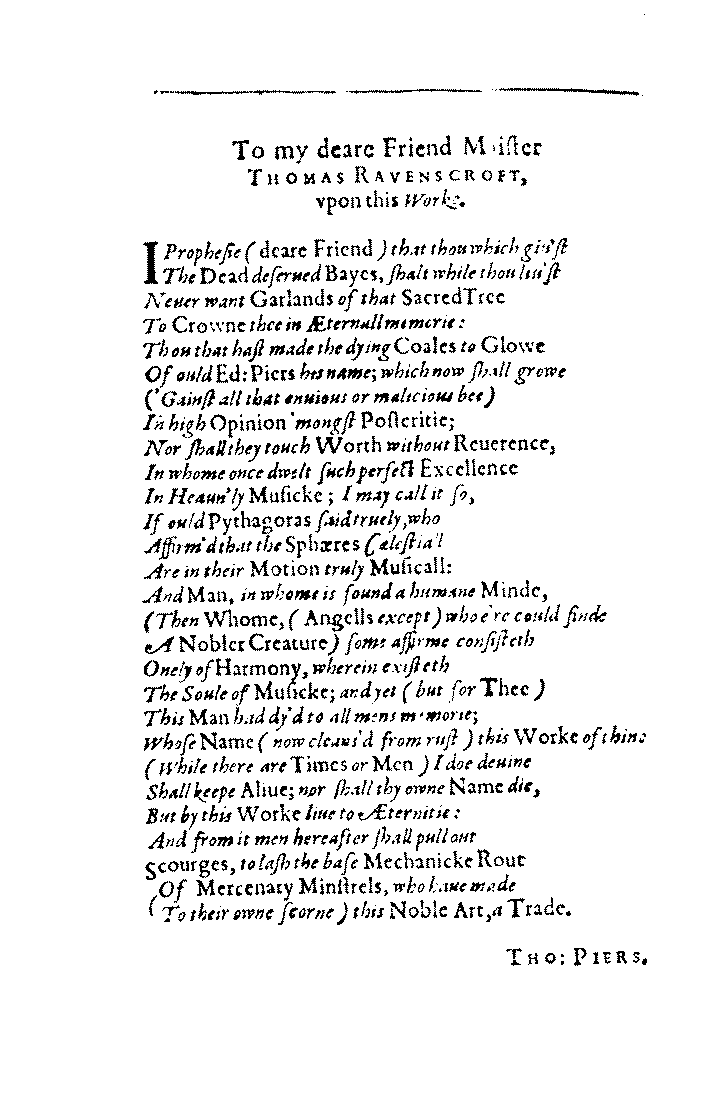 To my deare Friend Maiſter
THOMAS RAVENSCROFT,
vpon this Worke.
I Propheſie ( deare Friend ) that thou which giu'ſt
The Dead deſerued Bayes, ſhalt while thou liu'ſt
Neuer want Garlands of that Sacred Tree
To Crowne thee in Æternall memorie:
Thou that haſt made the dying Coales to Glowe
Of ould Ed: Piers his name; which now ſhall growe
('Gainſt all that enuious or malicious bee)
In high Opinion 'mongſt Poſteritie;
Nor ſhall they touch Worth without Reuerence,
In whome once dwelt ſuch perfect Excellence
In Heaun'ly Muſicke ; I may call it ſo,
If ould Pythagoras ſaid truely, who
Affirm'd that the Sphæres Cæleſtiall
Are in their Motion truly Muſicall:
And Man, in whome is found a humane Minde,
(Then Whome, ( Angells except ) who e're could finde
A Nobler Creature) ſome affirme conſiſteth
Onely of Harmony, wherein exiſteth
The Soule of Muſicke; and yet ( but for Thee )
This Man had dy'd to all mens memorie;
Whoſe Name ( now cleans'd from ruſt ) this Worke of thine
( While there are Times or Men ) I doe deuine
Shall keepe Aliue; nor ſhall thy owne Name die,
But by this Worke liue to Æternitie:
And from it men hereafter ſhall pull out
Scourges, to laſh the baſe Mechanicke Rout
Of Mercenary Minſtrels, who haue made
( To their owne ſcorne ) this Noble Art, a Trade.
THO: PIERS.